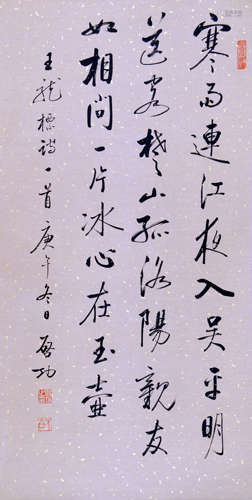 寒雨連江夜入吴平明
送客楚山孤洛陽親友
如相問一片冰心在玉壺
王龍標詩一首 庚午冬日 啓功